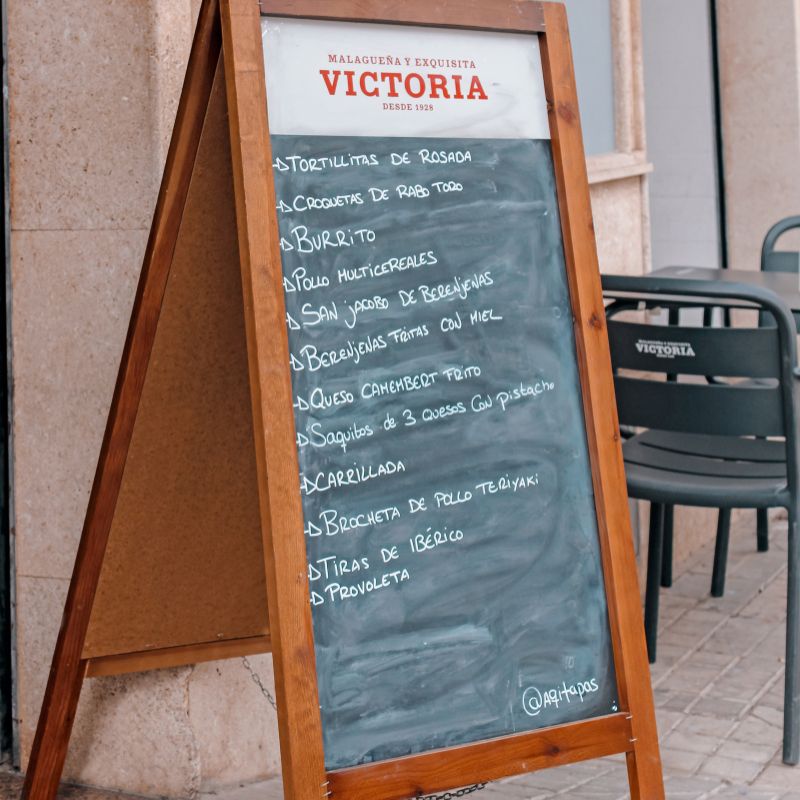 MALAGUEÑA Y EXQUISITA
VICTORIA
DESDE 1928
TORTILLITAS DE ROSADA
CROQUETAS DE RABO TORO
BURRITO
POLLO MULTICEREALES
SAN JACOBO DE BERENJENAS
BERENJENAS FRITAS CON MIEL
QUESO CAMEMBERT FRITO
Saquitos de 3 quesos con pistacho
CARRILLADA
BROCHETA DE POLLO TERIYAKI
TIRAS DE IBÉRICO
PROVOLETA
@Aqitapas
MALAGUEÑA Y EXQUISITA
VICTORIA